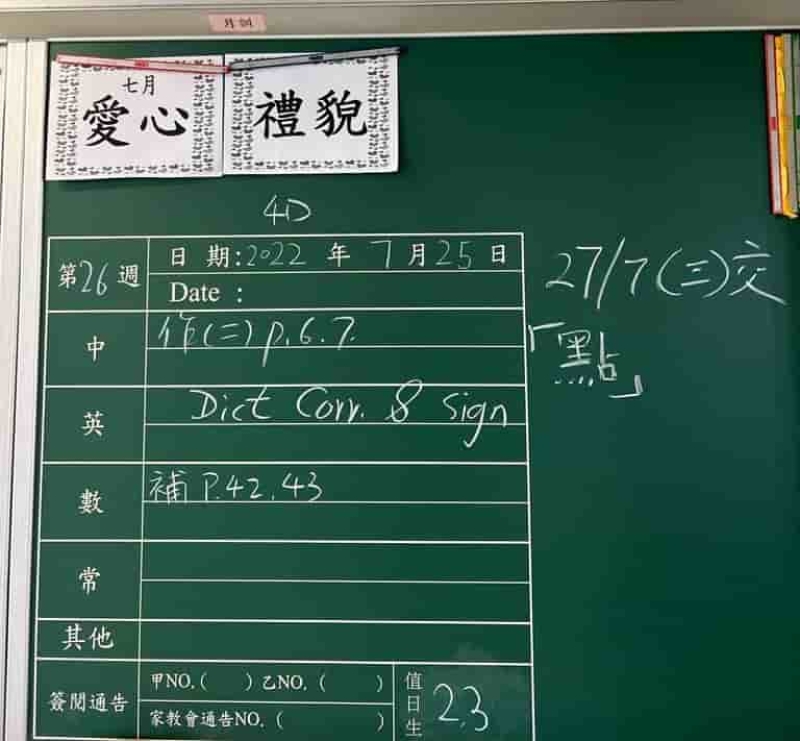 七月
愛心
禮貌
4D
第26週
日 期:2022 年 7月25日
Date :
中
作(二) p.6.7.
英
Dict Corr. & Sign
數
補 P.42.43
常
其他
簽閱通告
甲NO.( ) 乙NO.( )
家教會通告NO.( )
值日生
2,3
27/7(三)交
「點」